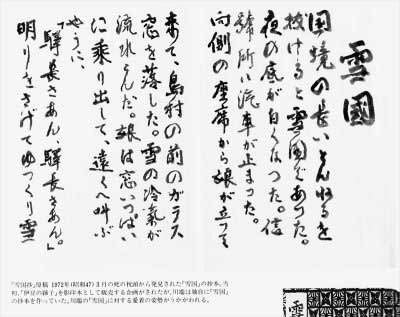 雪國
国境の長いとんねるを
抜けると雪国であつた。
夜の底が白くなつた。信
號所に汽車が止まつた。
向側の座席から娘が立つて
来て、島村の前のガラス
窓を落した。雪の冷氣が
流れこんだ。娘は窓いつぱい
に乗り出して、遠くへ叫ぶ
やうに、
「驛長さあん、驛長さあん。」
明りをさげてゆつくり雪
『雪国抄』原稿 1972年(昭和47)3月の死の枕頭から発見された『雪国』の抄本。当
時、『伊豆の踊子』を影印本として販売する企画がされたが、川端は独自に『雪国』
の抄本を作っていた。川端の『雪国』に対する愛着の姿勢がうかがわれる。